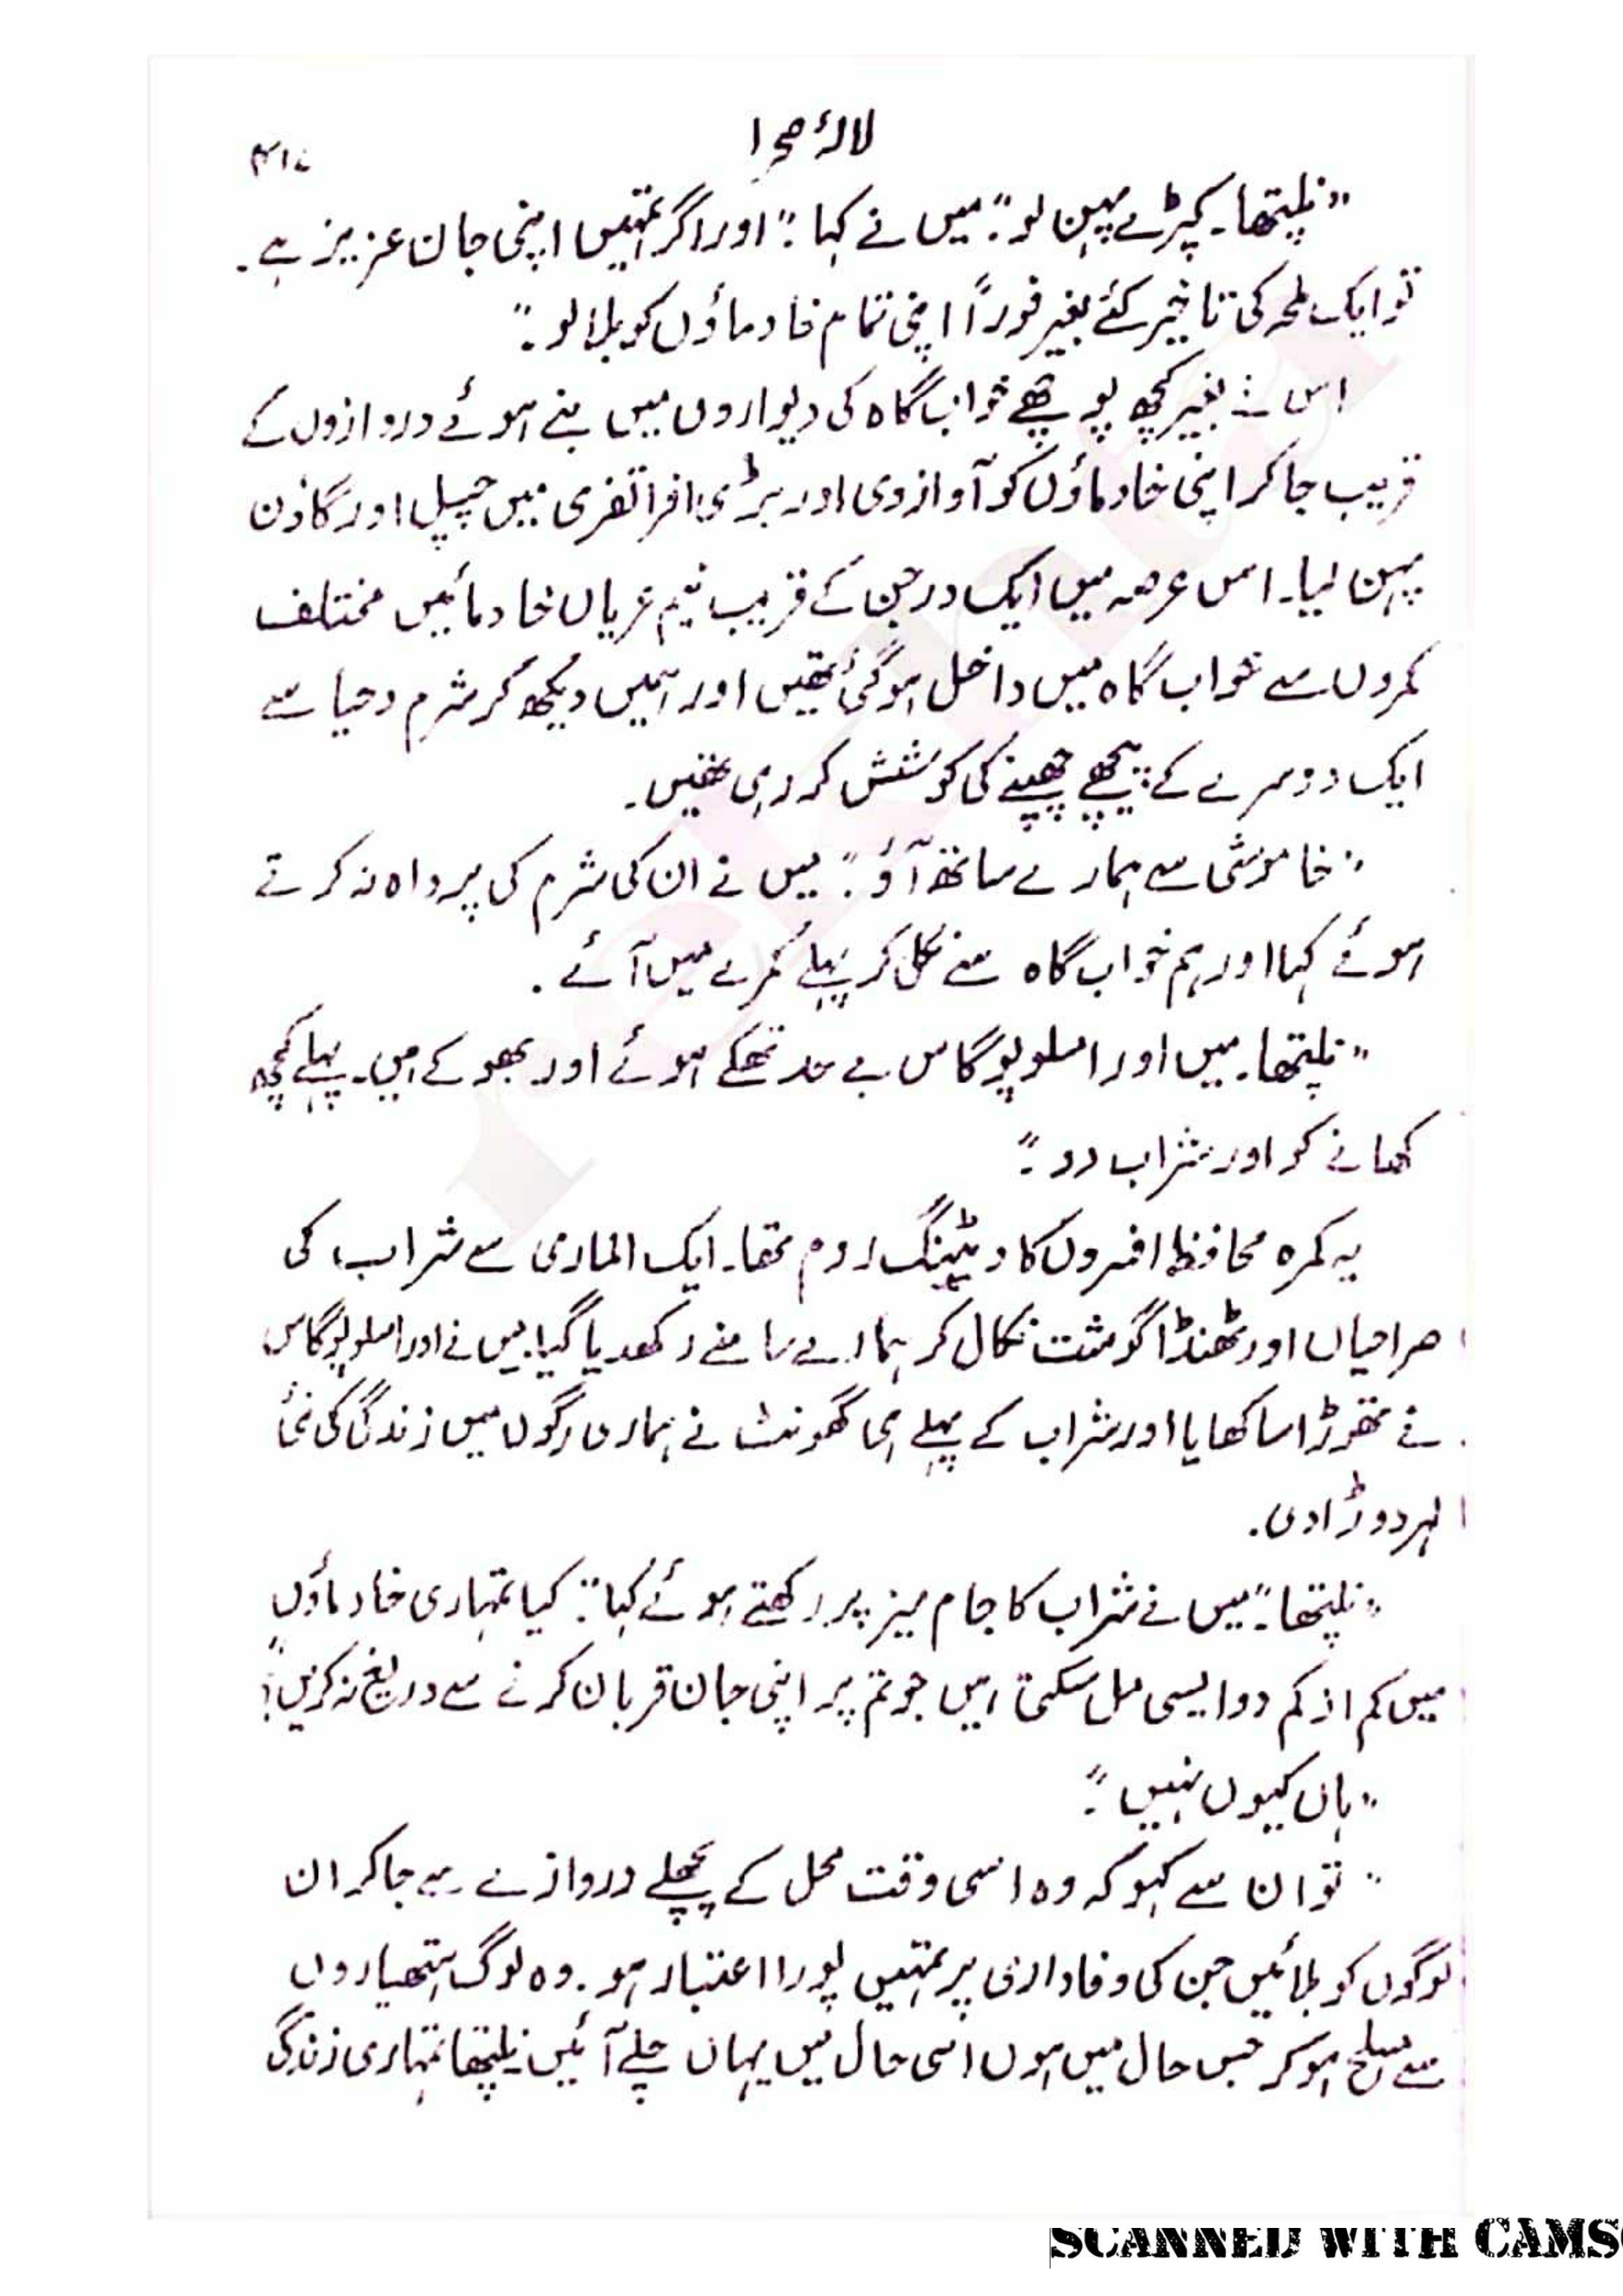 لالۂ صحرا
۳۱۷
"نلپتھا۔ کپڑے پہن لو۔" میں نے کہا۔ "اور اگر تمہیں اپنی جان عزیز ہے۔
تو ایک لمحہ کی تاخیر کئے بغیر فوراً اپنی تمام خادماؤں کو بلا لو۔"
اس نے بغیر کچھ پوچھے خواب گاہ کی دیواروں میں بنے ہوئے دروازوں کے
قریب جا کر اپنی خادماؤں کو آواز دی اور بڑی افراتفری میں چپل اور گاؤن
پہن لیا۔ اس عرصہ میں ایک درجن کے قریب نیم عریاں خادمائیں مختلف
کمروں سے خواب گاہ میں داخل ہو گئی تھیں اور ہمیں دیکھ کر شرم و حیا سے
ایک دوسرے کے پیچھے چھپنے کی کوشش کر رہی تھیں۔
"خاموشی سے ہمارے ساتھ آؤ۔" میں نے ان کی شرم کی پرواہ نہ کرتے
ہوئے کہا اور ہم خواب گاہ سے نکل کر پہلے کمرے میں آئے۔
"نلپتھا۔ میں اور امسلوپوگاس بے حد تھکے ہوئے اور بھوکے ہیں۔ پہلے کچھ
کھانے کو اور شراب دو۔"
یہ کمرہ محافظ افسروں کا ویٹینگ روم تھا۔ ایک الماری سے شراب کی
صراحیاں اور ٹھنڈا گوشت نکال کر ہمارے سامنے رکھدیا گیا۔ میں نے اور امسلوپوگاس
نے تھوڑا سا کھایا اور شراب کے پہلے ہی گھونٹ نے ہماری رگوں میں زندگی کی نئی
لہر دوڑا دی۔
"نلپتھا۔" میں نے شراب کا جام میز پر رکھتے ہوئے کہا۔ "کیا تمہاری خادماؤں
میں کم از کم دو ایسی مل سکتی ہیں جو تم پر اپنی جان قربان کرنے سے دریغ نہ کریں؟"
"ہاں کیوں نہیں۔"
"تو ان سے کہو کہ وہ اسی وقت محل کے پچھلے دروازے سے جا کر ان
لوگوں کو بلائیں جن کی وفاداری پر تمہیں پورا اعتبار ہو۔ وہ لوگ ہتھیاروں
سے مسلح ہو کر جس حال میں ہوں اسی حال میں یہاں چلے آئیں۔ نلپتھا تمہاری زندگی
SCANNED WITH CAMS